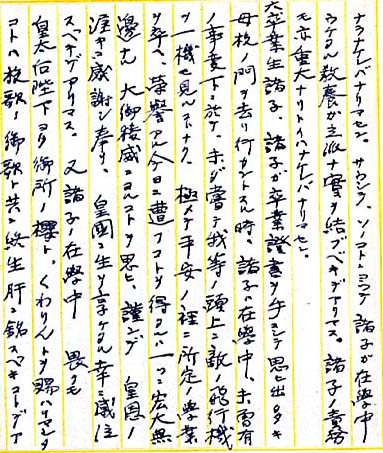 ナラナケレバナリマセン。サウシテ、ソノコトニヨツテ諸子ガ在學中
ウケタル教養ガ立派ナ實ヲ結ブベキデアリマス。諸子ノ責務
モ亦重大ナリトイハナケレバナリマセン。
卒業生諸子、諸子ガ卒業證書ヲ手ニシテ思ヒ出多キ
母校ノ門ヲ去リ行カントスル時、諸子ハ在學中、未曾有
ノ事変下ニ於テ、未ダ嘗テ我等ノ頭上ニ敵ノ飛行機
ノ一機モ見ルコトナク、極メテ平安ノ裡ニ所定ノ學業
ヲ卒ヘ、榮譽アル今日ニ遭フコトヲ得タルハ一ツニ宏大無
邊ナル大御稜威ニヨルコトヲ思ヒ、謹ンデ 皇恩ノ
渥キニ感謝シ奉リ、皇國ニ生ヲ享ケタル幸ニ感泣
スベキデアリマス。又諸子ノ在學中 畏クモ
皇太后陛下ヨリ御所ノ樺ト、くわりんトヲ賜ハリマシタ
コトハ校歌ノ御歌ト共ニ終生肝ニ銘ズベキコトデア